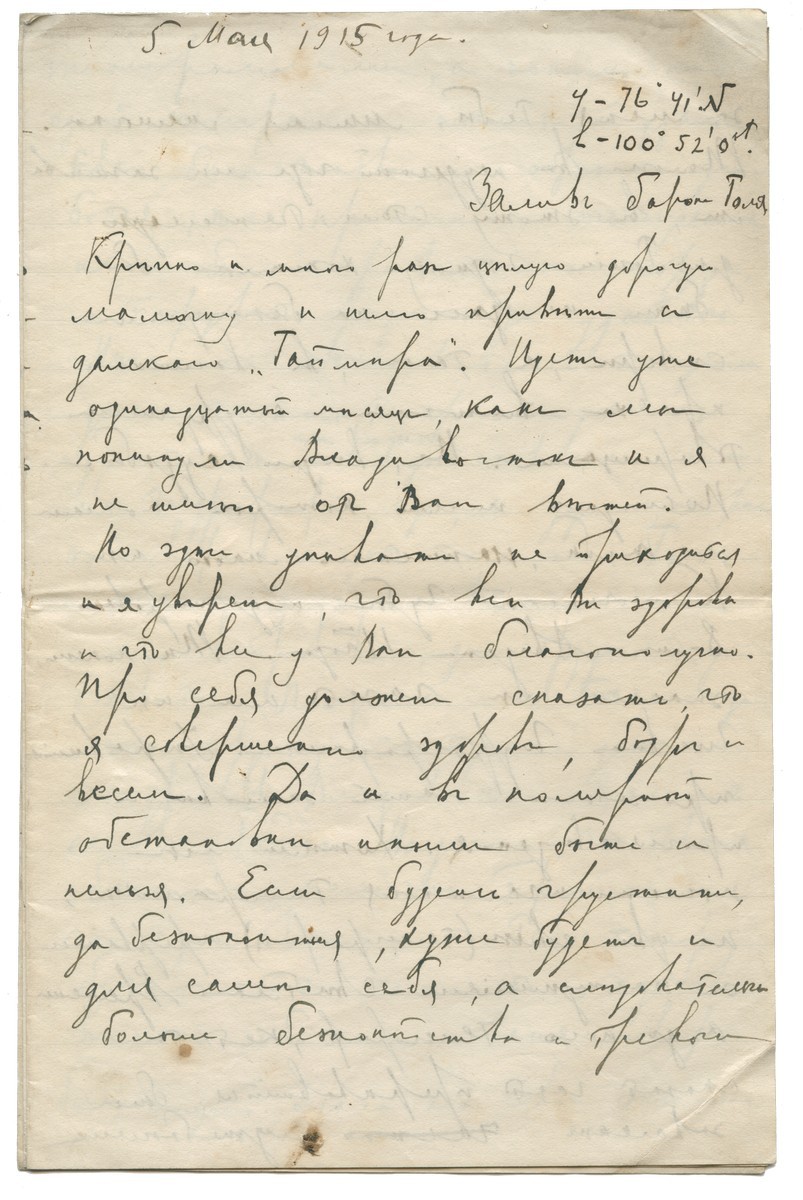 5 Мая 1915 года.
φ – 76° 41′ N
λ – 100° 52′ Ost.
Заливъ барона Толя
Крѣпко и много разъ цѣлую дорогую
мамочку и шлю привѣтъ съ
далекаго „Таймыра“. Идетъ уже
одинадцатый мѣсяцъ, какъ мы
покинули Владивостокъ и я
не имѣю отъ Васъ вѣстей.
Но здѣсь унывать не приходится
и я увѣренъ, что всѣ Вы здоровы
и что все у Васъ благополучно.
Про себя долженъ сказать, что
я совершенно здоровъ, бодръ и
веселъ. Да и въ полярной
обстановкѣ инымъ быть и
нельзя. Если будешь грустить,
да безпокоиться, хуже будетъ и
для самого себя, а слѣдовательно
больше безпокойства и тревоги